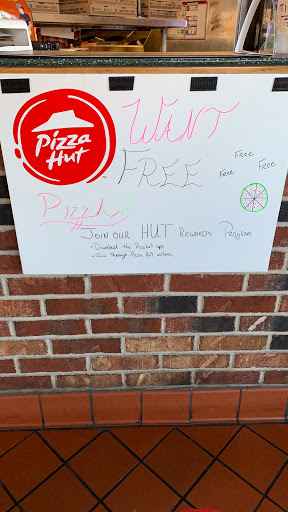 Pizza
Hut
WANT
FREE
Free
Free
Free
Pizza
Join our HUT Rewards Program
- Download the Pizza Hut app
- Join through Pizza Hut online.